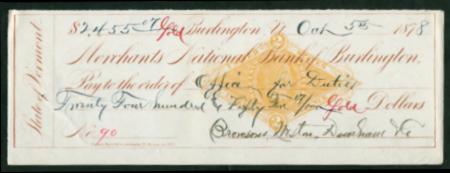 $2455 07 Gold Burlington Vt Oct 5th 1878
Merchants National Bank of Burlington.
Pay to the order of Office for Duties
Twenty Four hundred & Fifty Five 07/100 Gold Dollars
No. 90
State of Vermont